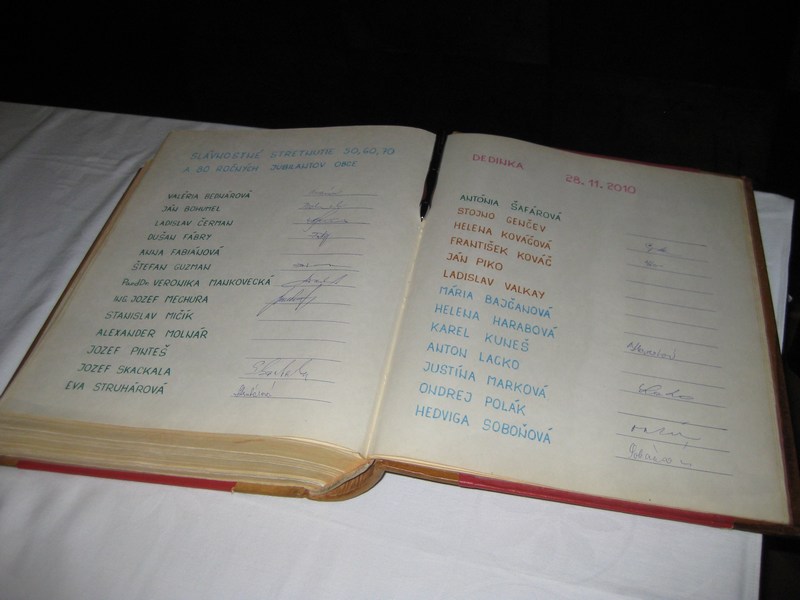 SLÁVNOSTNÉ STRETNUTIE 50, 60, 70
A 80 ROČNÝCH JUBILANTOV OBCE
VALÉRIA BEDNÁROVÁ
JÁN BOHUMEL
LADISLAV ČERMAN
DUŠAN FÁBRY
ANNA FABIÁNOVÁ
ŠTEFAN GUZMAN
PaedDr. VERONIKA MANKOVECKÁ
ING. JOZEF MECHURA
STANISLAV MIČÍK
ALEXANDER MOLNÁR
JOZEF PINTEŠ
JOZEF SKACKALA
EVA STRUHÁROVÁ
DEDINKA
28. 11. 2010
ANTÓNIA ŠAFÁROVÁ
STOJNO GENČEV
HELENA KOVÁČOVÁ
FRANTIŠEK KOVÁČ
JÁN PIKO
LADISLAV VALKAY
MÁRIA BAJČANOVÁ
HELENA HARABOVÁ
KAREL KUNEŠ
ANTON LACKO
JUSTÍNA MARKOVÁ
ONDREJ POLÁK
HEDVIGA SOBOŇOVÁ